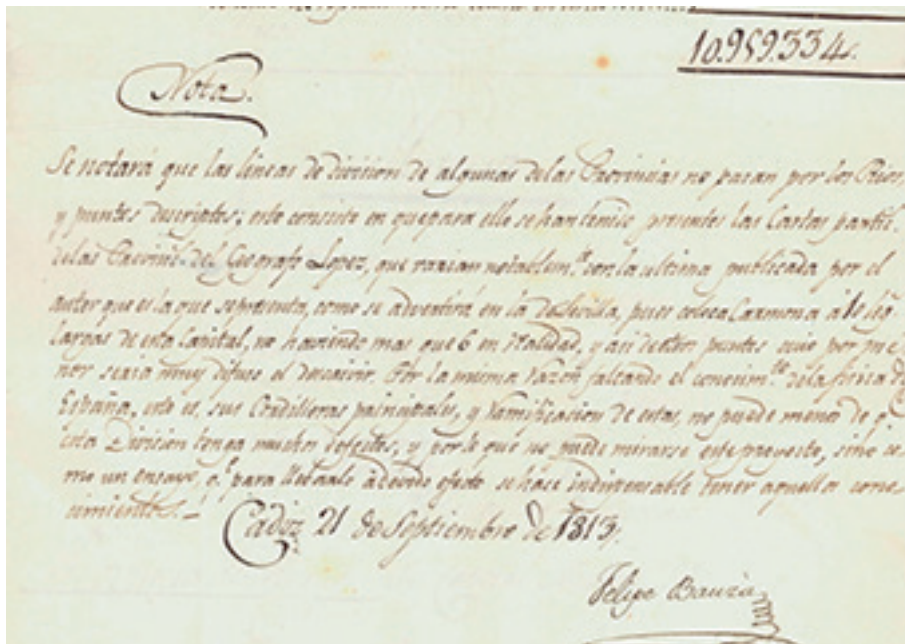 10.959.334.
Nota.
Se notará que las lineas de division de algunas de las Provincias no pasan por los Rios,
y puntos descriptos; esto consiste en que para ello se han tenido presentes las Cartas partic.
de las Provin.s del Geografo Lopez, que varian notablem.te con la ultima publicada por el
autor que es la que se presenta, como se advertirá en la de Sevilla, pues coloca Carmona á 10 leg.
largas de esta Capital, no haviendo mas que 6 en realidad, y asi de otros puntos cuio por me-
nor seria muy difuso el descrivir. Por la misma razon faltando el conocim.to de la fisica de
España, esto es, sus Cordilleras principales, y ramificacion de estas, no puede menos de q.
esta Division tenga muchos defectos, y por lo que no puede mirarse este proyecto, sino co-
mo un ensayo, q.e para llebarlo á devido efecto se hace indispensable tener aquellos cono-
cimientos.
Cadiz 21 de Septiembre de 1813.
Felipe Bauzá